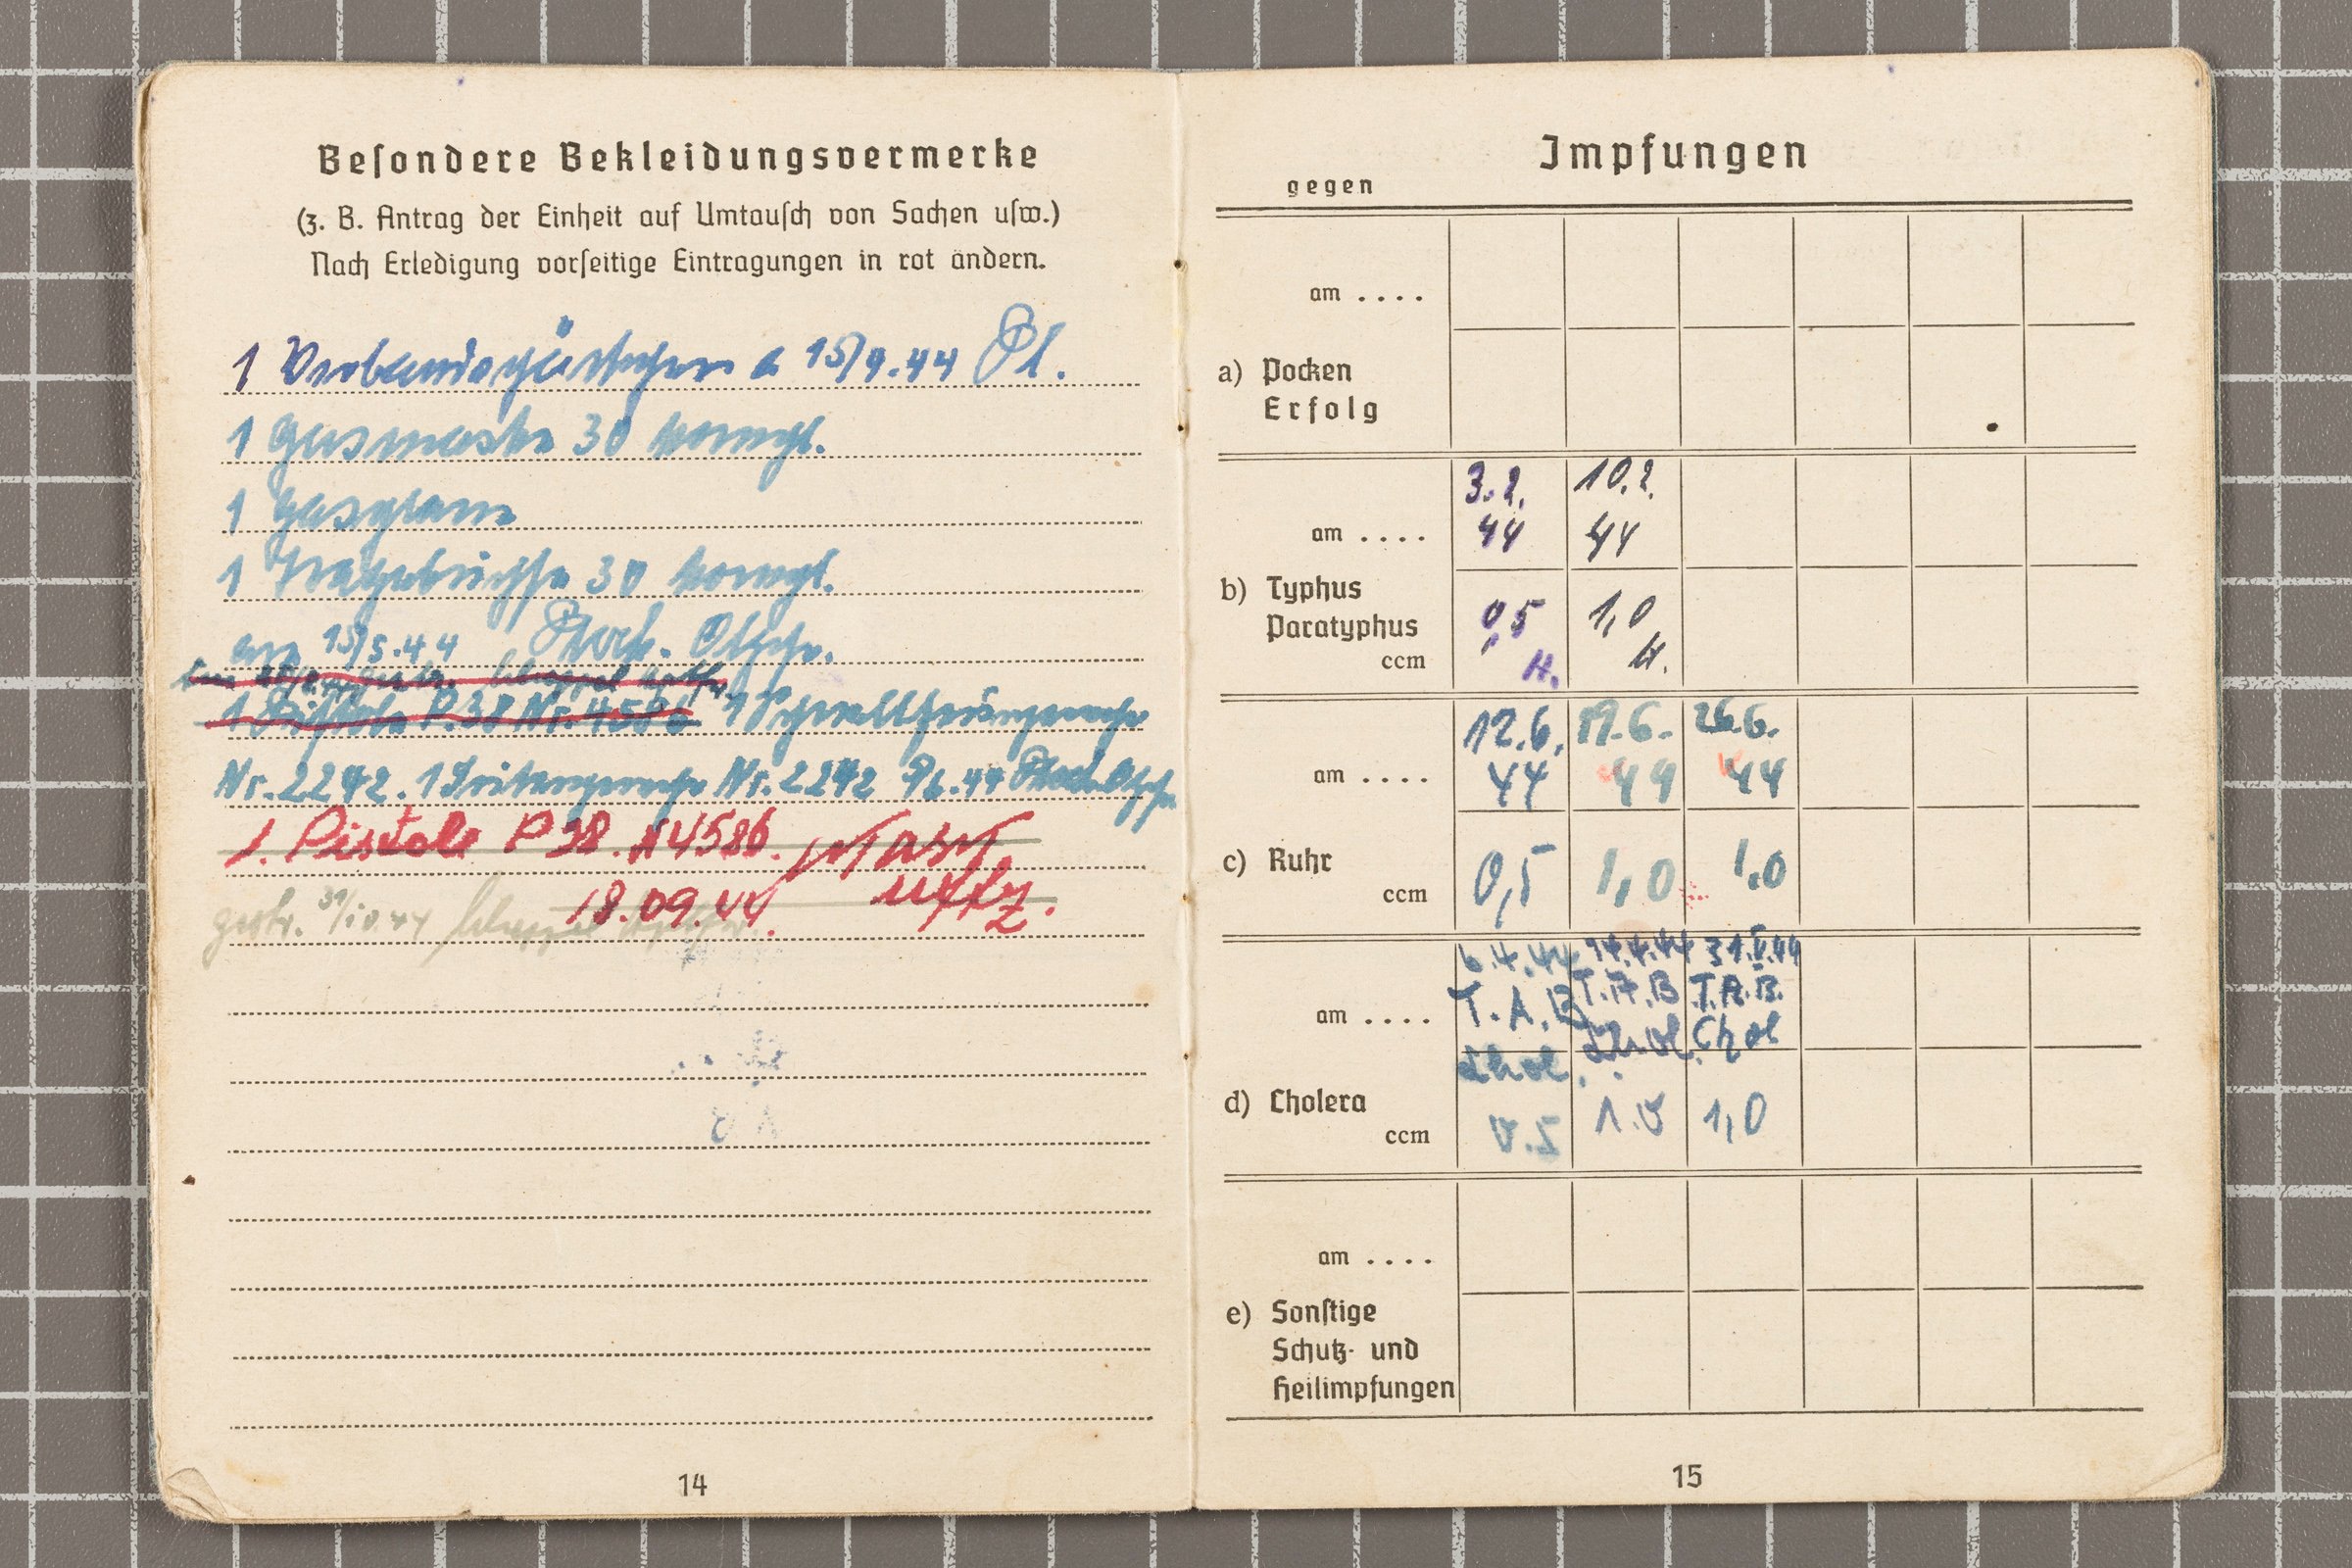 Beſondere Bekleidungsvermerke
(z. B. Antrag der Einheit auf Umtauſch von Sachen uſw.)
Nach Erledigung vorſeitige Eintragungen in rot ändern.
1 Verbandspäckchen a 15/4.44
1 Gasmaske 30 kompl.
1 Gasplane
1 Tragebüchse 30 kompl.
am 15/5.44
1 Pistole P.38 Nr. 4586 1 Schnellfeuergewehr
Nr. 2242. 1 Seitengewehr Nr. 2242
1. Pistole P 38. N 4586.
18.09.44 Uffz.
gestr. 31/10 44
14
Impfungen
gegen
am ....
a) Pocken
Erfolg
3.2. 10.2.
am .... 44 44
b) Typhus
Paratyphus 0,5 1,0
ccm H. H.
12.6. 19.6. 26.6.
am .... 44 44 44
c) Ruhr 0,5 1,0 1,0
ccm
6.4.44 14.4.44 31.V.44
am .... T.A.B T.A.B T.A.B.
Chol. Chol. Chol
d) Cholera
ccm 0.5 1.0 1,0
am ....
e) Sonſtige
Schutz- und
Heilimpfungen
15